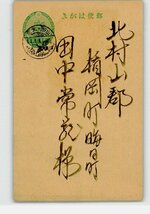 郵便はがき
北村山郡
楯岡町晦日町
田中常龍様